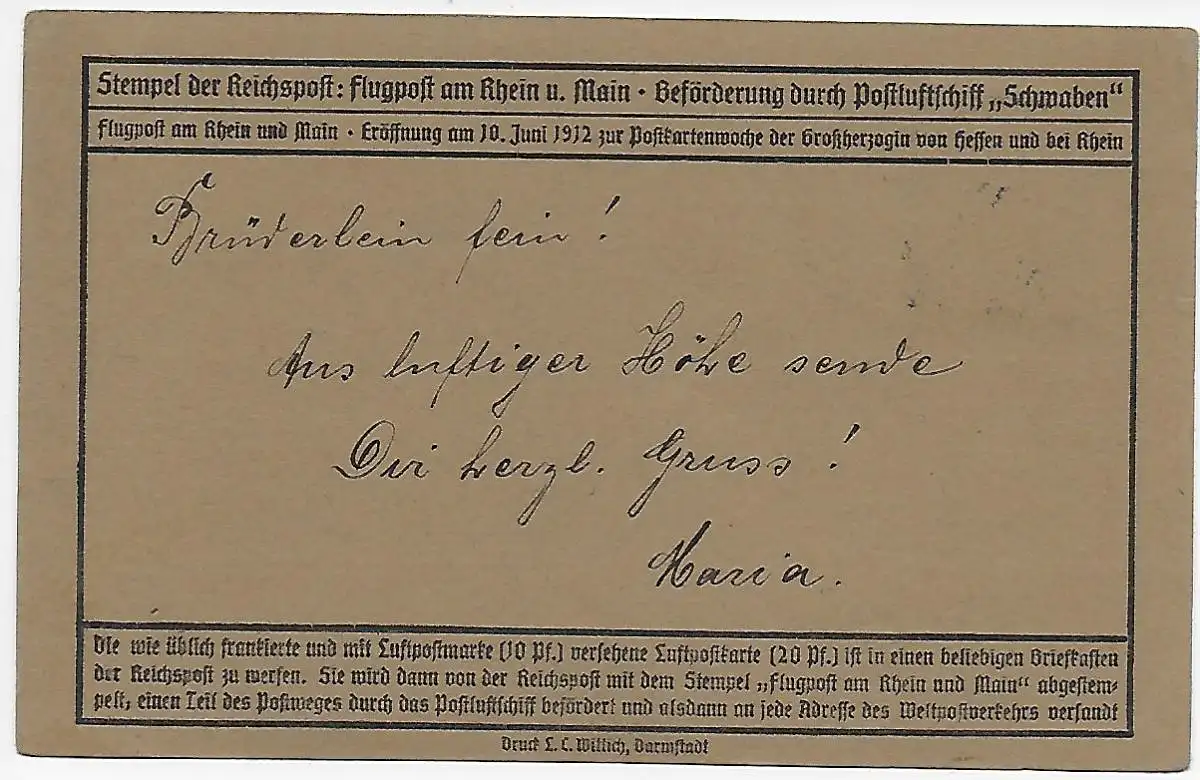 Stempel der Reichspost: Flugpost am Rhein u. Main · Beförderung durch Postluftschiff „Schwaben“
Flugpost am Rhein und Main · Eröffnung am 10. Juni 1912 zur Postkartenwoche der Großherzogin von Hessen und bei Rhein
Brüderlein fein!
Aus luftiger Höhe sende
Dir herzl. Gruss!
Maria.
Die wie üblich frankierte und mit Luftpostmarke (10 Pf.) versehene Luftpostkarte (20 Pf.) ist in einen beliebigen Briefkasten
der Reichspost zu werfen. Sie wird dann von der Reichspost mit dem Stempel „Flugpost am Rhein und Main“ abgestem-
pelt, einen Teil des Postweges durch das Postluftschiff befördert und alsdann an jede Adresse des Weltpostverkehrs versandt
Druck L. C. Wittich, Darmstadt